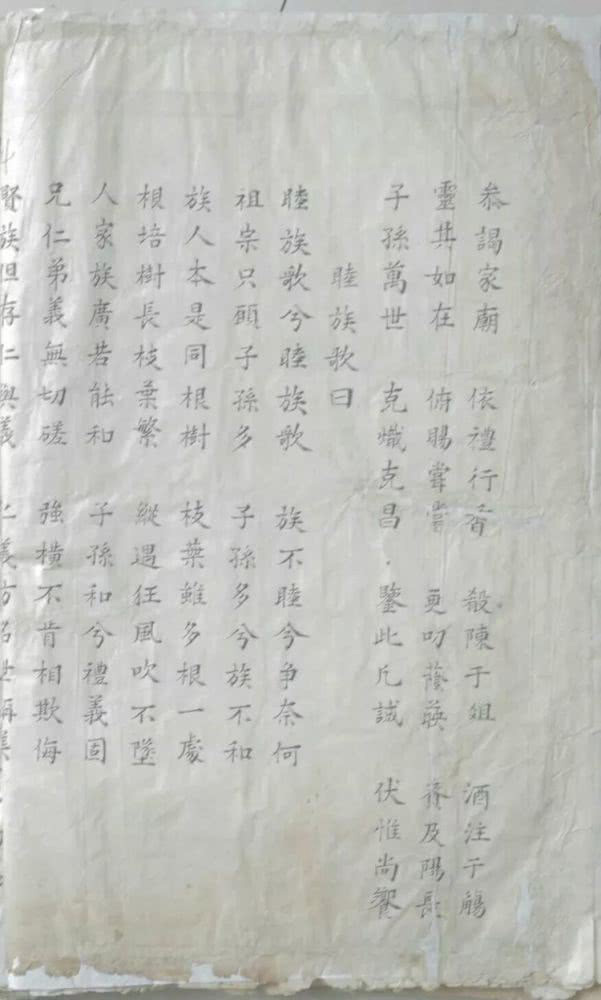 叅謁家廟 依禮行香 殽陳于俎 酒注于觴
靈其如在 俯賜嘗嘗 更叨蔭 及陽長
子孫萬世 克熾克昌 鑒此凡誠 伏惟尚饗
睦族歌曰
睦族歌兮睦族歌 族不睦兮争奈何
祖宗只願子孫多 子孫多兮族不和
族人本是同根樹 枝葉雖多根一處
根培樹長枝葉繁 縱遇狂風吹不墜
人家族廣若能和 子孫和兮禮義固
兄仁弟義無切磋 強橫不肯相欺侮
賢族但存仁與義 仁義方名世稱美